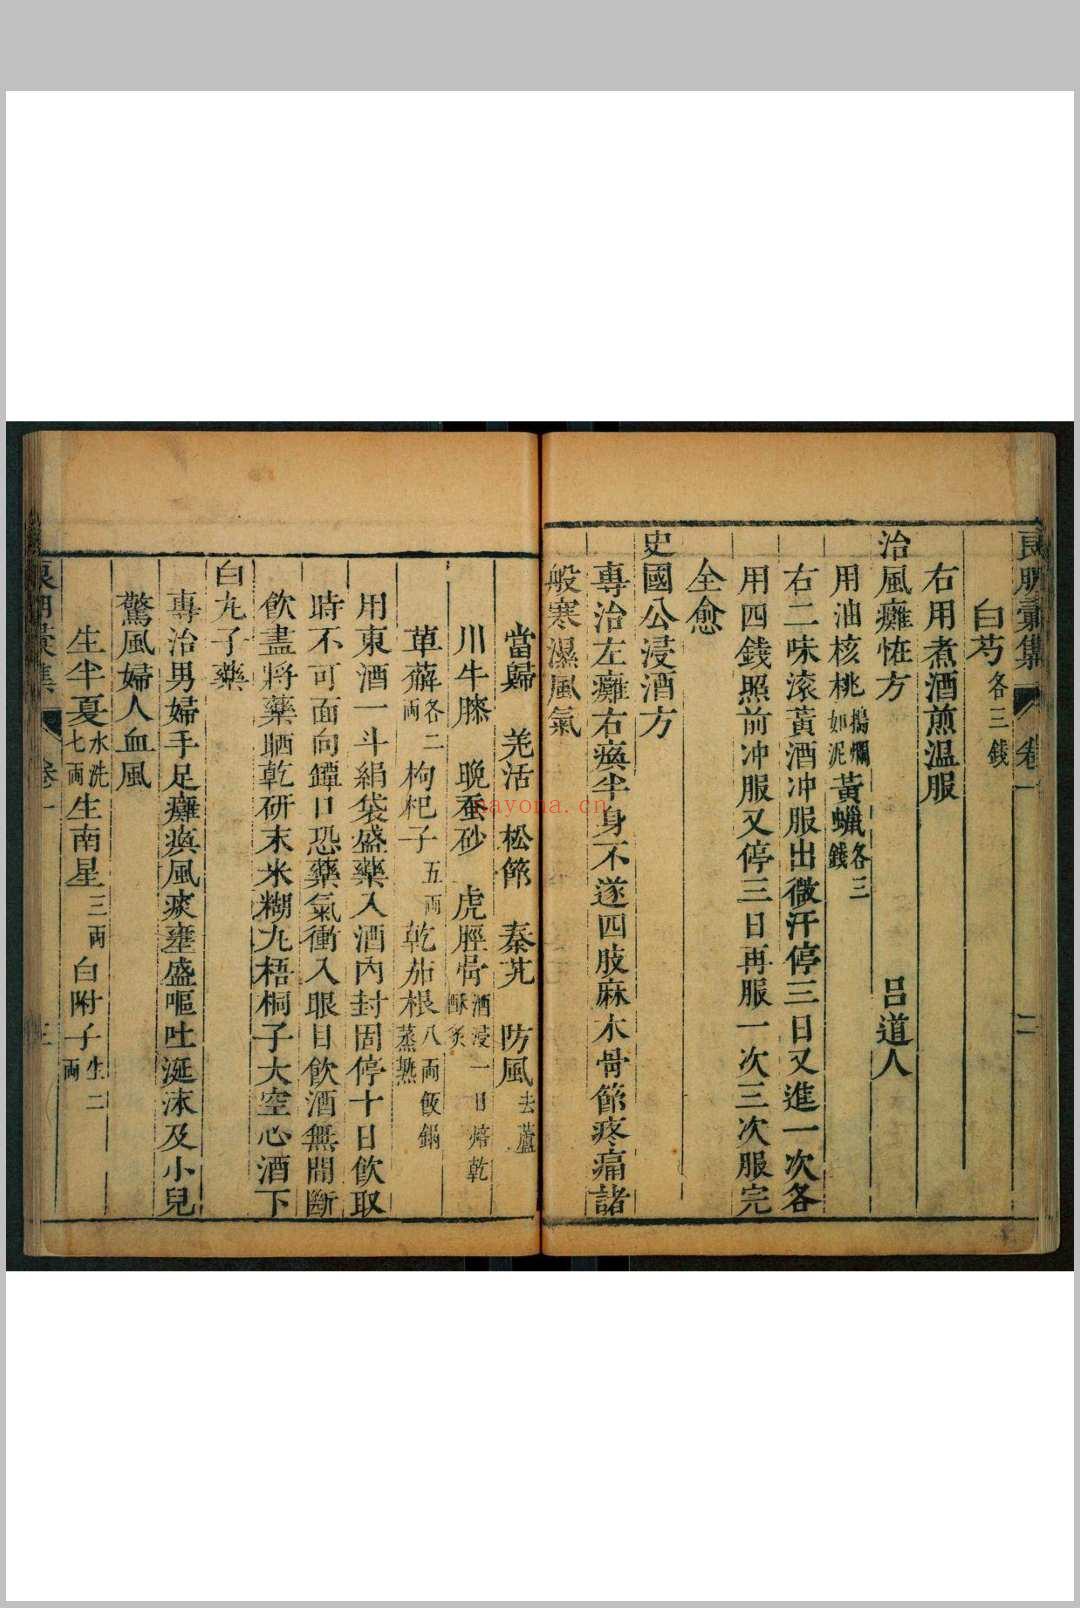 良朋彙集 卷一 二
白芍各三錢
右用煮酒煎温服
治風癱恠方 呂道人
用油核桃搗爛如泥黃蠟各三錢
右二味滚黃酒冲服出微汗停三日又進一次各
用四錢照前冲服又停三日再服一次三次服完
全愈
史國公浸酒方
專治左癱右瘓半身不遂四肢麻木骨節疼痛諸
般寒濕風氣
當歸 羌活 松節 秦艽 防風去蘆
川牛膝 晚蚕砂 虎脛骨酒浸一日焙乾酥炙
萆薢各二両 枸杞子五両 乾茄根八両飯鍋蒸熟
用東酒一斗絹袋盛藥入酒内封固停十日飲取
時不可面向罈口恐藥氣衝入眼目飲酒無間斷
飲盡將藥晒乾研末米糊丸梧桐子大空心酒下
白丸子藥
專治男婦手足癱瘓風痰壅盛嘔吐涎沫及小兒
驚風婦人血風
生半夏水洗七両生南星三両白附子生二両
良朋彙集 卷一 三
nayona.cn